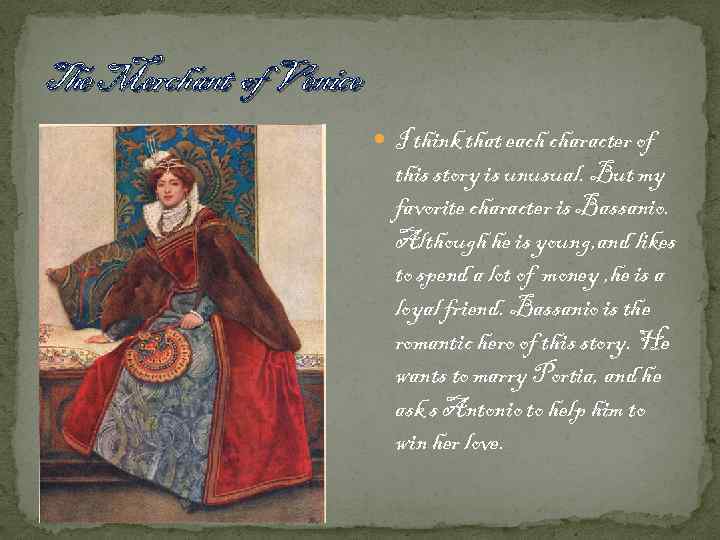 The Merchant of Venice
• I think that each character of
this story is unusual. But my
favorite character is Bassanio.
Although he is young,and likes
to spend a lot of money ,he is a
loyal friend. Bassanio is the
romantic hero of this story. He
wants to marry Portia, and he
asks Antonio to help him to
win her love.